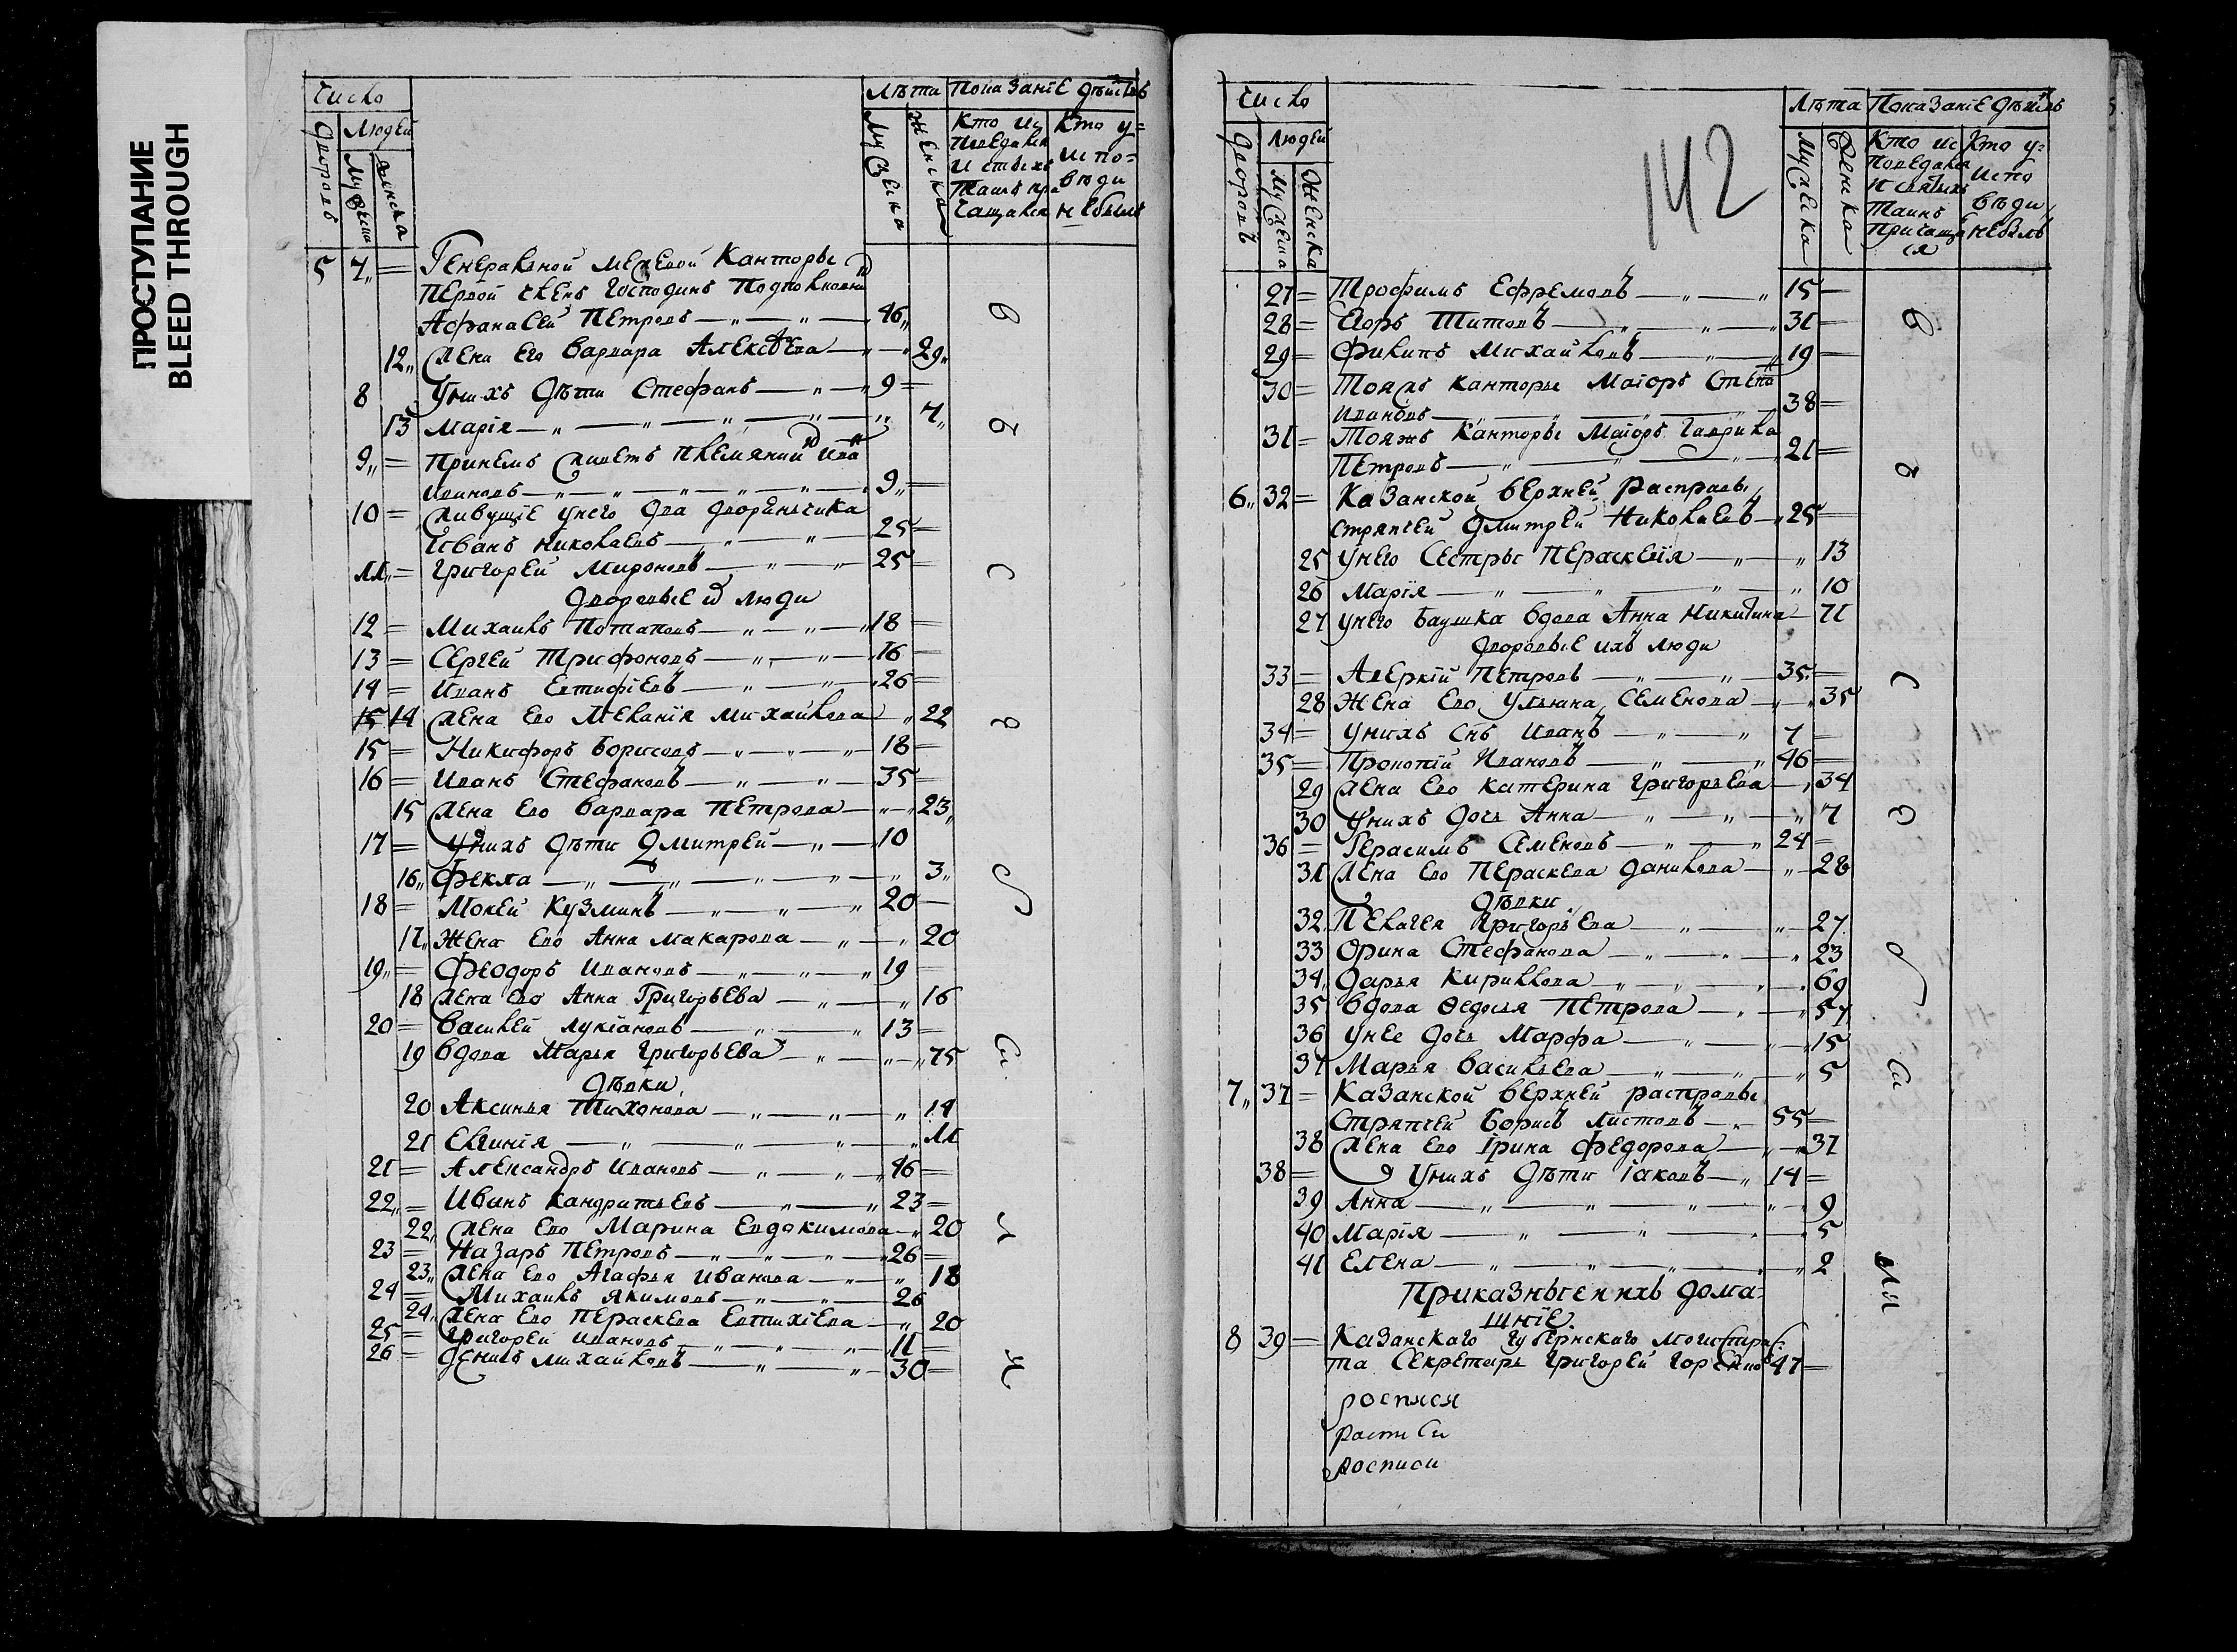 ПРОСТУПАНИЕ
BLEED THROUGH
Число
Людей
Дворовъ
Мужеска
Женска
Лѣта
Мужеска
Женска
Показание дѣйствъ
Кто ис
поведался
и святыхъ
таинъ при
чащался
Кто у=
испо=
вѣди
не былъ
5 7 = Генералной межевой канторы
первой членъ господинъ подполковни
Афанасей Петровъ 46
12 жена его Варвара Алексѣева 29
8 у нихъ дѣти Стефанъ 9 =
13 Марія 7
9 = при немъ живетъ племянникъ Ива
Ивановъ 9 =
10 = живущіе у него два дворянчика
Иванъ Николаевъ 25 =
11 = Григорей Мироновъ 25 =
Дворовые люди
12 = Михаилъ Потаповъ 18 =
13 = Сергей Трифоновъ 16 =
14 = Иванъ Евтифіевъ 26 =
15 14 жена ево Меланія Михайлова 22
15 = Никифоръ Борисовъ 18 =
16 = Иванъ Стефановъ 35 =
15 жена ево Варвара Петрова 23
17 = у нихъ дѣти Дмитрей 10
16 Фекла 3
18 = Мокей Кузминъ 20 =
17 жена ево Анна Макарова 20
19 = Феодоръ Ивановъ 19 =
18 жена ево Анна Григорьева 16
20 = Василей Лукіановъ 13 =
19 вдова Марья Григорьева 75
Дѣвки
20 Аксинья Тихонова 14
21 Евгинія 11
21 = Александръ Ивановъ 46 =
22 = Иванъ Кандратьевъ 23 =
22 жена ево Марина Евдокимова 20
23 = Назаръ Петровъ 26 =
23 жена ево Агафья Иванова 18
24 = Михаилъ Якимовъ 26
24 жена ево Пераскева Евтихіева 20
25 = Григорей Ивановъ 11 =
26 = Денисъ Михайловъ 30 =
142
Число
Людей
Дворовъ
Мужеска
Женска
Лѣта
Мужеска
Женска
Показание дѣйствъ
Кто ис
поведался
и святыхъ
таинъ
причащал
ся
Кто у=
испо
вѣди
не былъ
27 = Трофимъ Ефремовъ 15 =
28 = Егоръ Титовъ 31 =
29 = Филипъ Михайловъ 19 =
30 = Тояжъ канторы маіоръ Степа
Ивановъ 38 =
31 = Тояжъ канторы маіоръ Гаврила
Петровъ 21 =
6 32 = Казанской верхней расправы
стряпчей Дмитрей Николаевъ 25 =
25 у него сестры Пераскевія 13
26 Марія 10
27 у него баушка вдова Анна Никитина 71
Дворовые ихъ люди
33 = Аверкій Петровъ 35 =
28 жена ево Ульяна Семенова 35
34 = у нихъ снъ Иванъ 7 =
35 = Прокопій Ивановъ 46 =
29 жена ево Катерина Григорьева 34
30 у нихъ дочь Анна 7
36 = Герасимъ Семеновъ 24 =
31 жена ево Пераскева Данилова 28
Дѣвки
32 Пелагея Григорьева 27
33 Орина Стефанова 23
34 Дарья Кирилова 69
35 вдова Ѳедосья Петрова 57
36 у нее дочь Марфа 15
37 Марья Васильева 5
7 37 = Казанской верхней расправы
стряпчей Борисъ Листовъ 55 =
38 жена ево Ірина Федорова 37
38 = у нихъ дѣти Іаковъ 14 =
39 Анна 9
40 Марія 5
41 Елена 2
Приказные и ихъ дома=
шніе
8 39 = Казанскаго губернскаго могистра
та секретарь Григорей 47 =
росписи
росписи
росписи